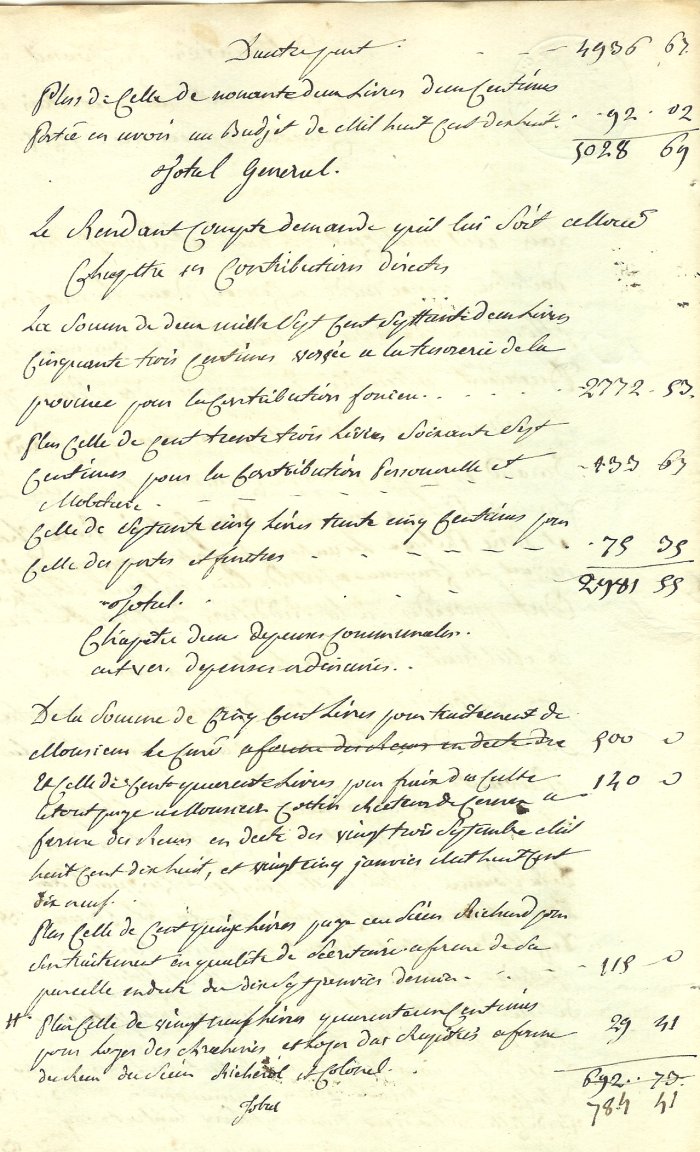 D'autre part - - 4936 67
Plus de Celle de nonante deux Livres deux Centimes
Portée en avoir au Budjet de Mil huit Cent dix huit. 92 02
5028 69
Total General.
Le Rendant Compte demande qu'il lui Soit allouer
Chapitre en Contributions directes
La Somme de deux mille Sept Cent Septtante deux Livres
Cinquante trois Centimes versée a la tresorerie de la
province pour la Contribution fonciere. 2772 53.
Plus Celle de Cent trente trois Livres Soixante Sept
Centimes pour la Contribution Personnelle et 133 67
Mobiliaire.
Celle de Septante Cinq Livres trente cinq Centimes pour
Celle des portes et fenetres - - - - 75 35
2981 55
Total.
Chapitre deux depenses Communales.
art 1er. depenses ordinaires.
De la Somme de Cinq Cent Livres pour traitement de
Monsieur Le Curé a forme des recus en decte des 500 0
Et Celle de Cent quarente Livres pour fraix du Culte 140 0
le tout paye a Monsieur Recteur de a
forme des Recus en decte des vingt trois Septembre Mil
huit Cent dix huit, et vingt cinq janvier Mil huit Cent
dix neuf.
Plus Celle de Cent quinze Livres paye au Sieur Richard pour
Son traitement en qualité de Secretaire a forme de Sa
parcelle en decte du dix Sept janvier dernier - 115 0
H Plus Celle de vingt neuf Livres quarente un Centimes 29 41
pour Loger des et Loger des Registres a forme
du Recu du Sieur Richerd et Colonel.
692 73
Total 784 41